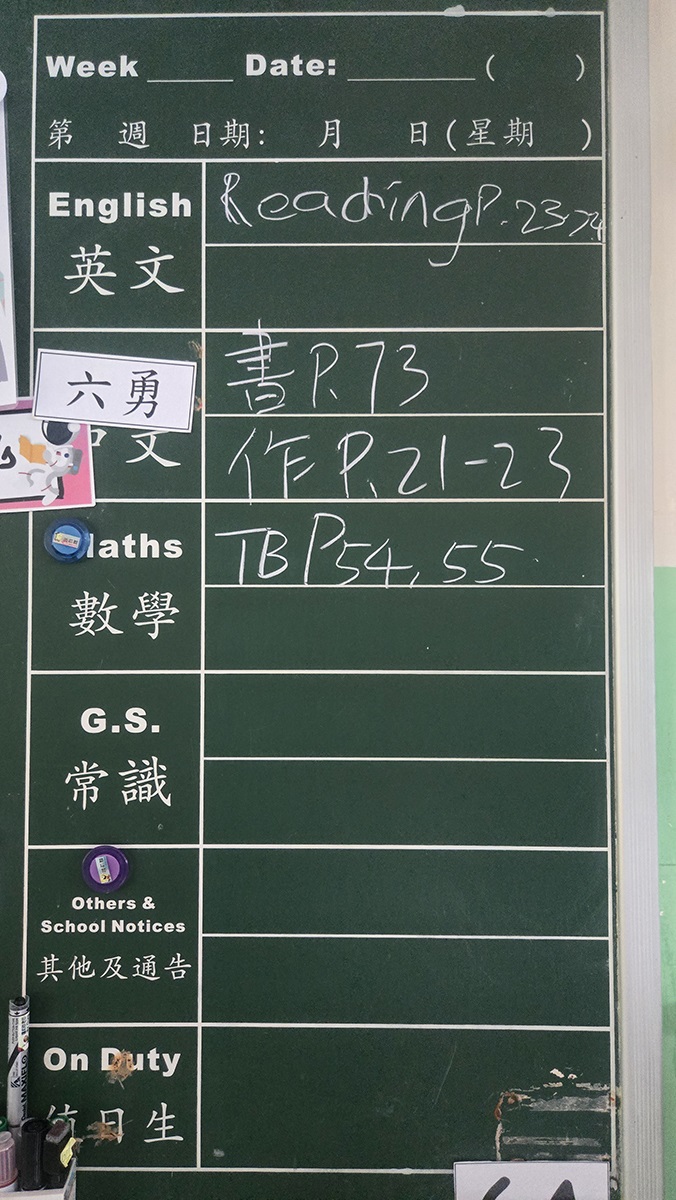 Week ______ Date: _________ ( )
第 週 日期: 月 日(星期 )
English
Reading P. 23-24
英文
六勇
書 P.73
文
作 P.21-23
Maths
TB P54, 55
數學
G.S.
常識
Others &
School Notices
其他及通告
On Duty
值日生